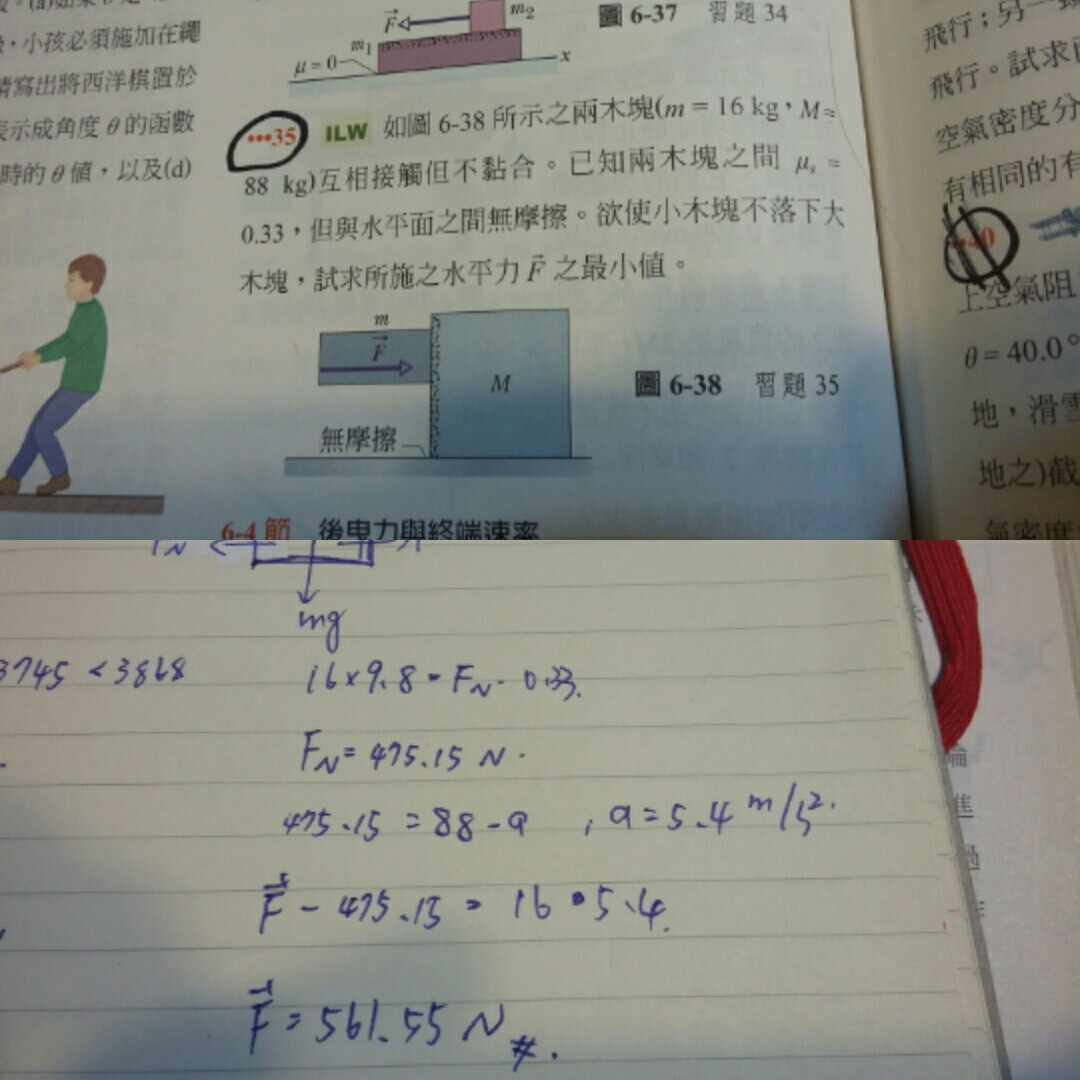 小孩必須施加在繩
請寫出將西洋棋置於
表示成角度 θ 的函數
時的 θ 值，以及(d)
F
m₂
m₁
μ = 0
x
圖 6-37 習題 34
•••35 ILW 如圖 6-38 所示之兩木塊(m = 16 kg，M =
88 kg)互相接觸但不黏合。已知兩木塊之間 μₛ =
0.33，但與水平面之間無摩擦。欲使小木塊不落下大
木塊，試求所施之水平力 F⃗ 之最小值。
m
F⃗
M
無摩擦
圖 6-38 習題 35
6-4 節 後曳力與終端速率
飛行；另一
飛行。試求
空氣密度分
有相同的有
上空氣阻
θ = 40.0°
地，滑雪
地之)截
氣密度
mg
3745 < 3868
16×9.8 = F_N · 0.33.
F_N = 475.15 N.
475.15 = 88 - a , a = 5.4 m/s².
F⃗ - 475.15 = 16 • 5.4.
F⃗ = 561.55 N #.